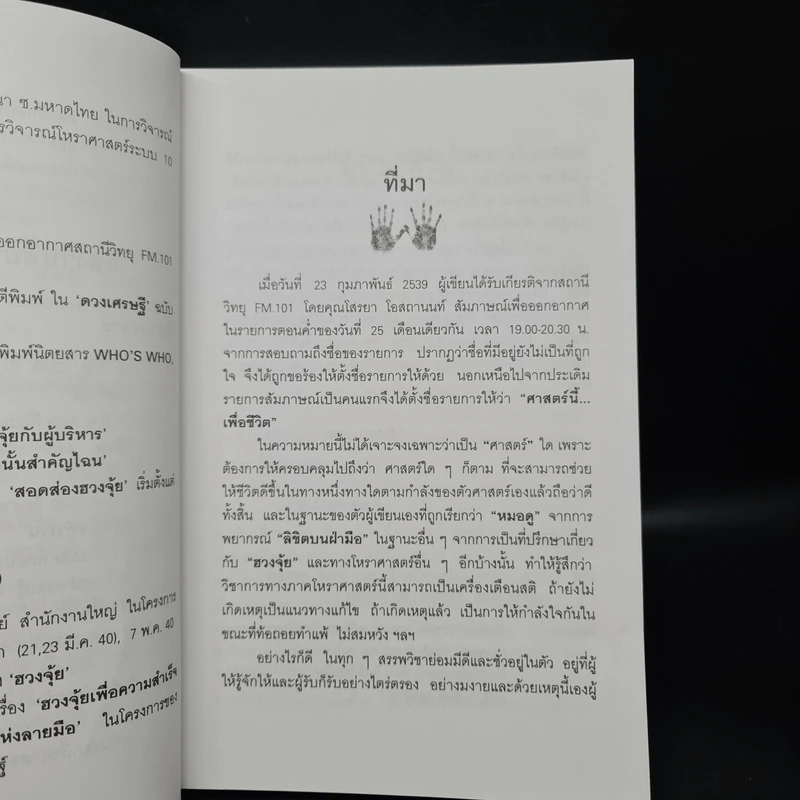 นา ซ.มหาดไทย ในการวิจารณ์
รวิจารณ์โหราศาสตร์ระบบ 10
ออกอากาศสถานีวิทยุ FM.101
ตีพิมพ์ ใน ‘ดวงเศรษฐี’ ฉบับ
พิมพ์นิตยสาร WHO'S WHO,
จุ้ยกับผู้บริหาร’
นั้นสำคัญไฉน’
‘สอดส่องฮวงจุ้ย’ เริ่มตั้งแต่
ย์ สำนักงานใหญ่ ในโครงการ
(21,23 มี.ค. 40), 7 พ.ค. 40
‘ฮวงจุ้ย’
รื่อง ‘ฮวงจุ้ยเพื่อความสำเร็จ
ห่งลายมือ’ ในโครงการของ
ที่มา
เมื่อวันที่ 23 กุมภาพันธ์ 2539 ผู้เขียนได้รับเกียรติจากสถานี
วิทยุ FM.101 โดยคุณโสรยา โอสถานนท์ สัมภาษณ์เพื่อออกอากาศ
ในรายการตอนค่ำของวันที่ 25 เดือนเดียวกัน เวลา 19.00-20.30 น.
จากการสอบถามถึงชื่อของรายการ ปรากฏว่าชื่อที่มีอยู่ยังไม่เป็นที่ถูก
ใจ จึงได้ถูกขอร้องให้ตั้งชื่อรายการให้ด้วย นอกเหนือไปจากประเดิม
รายการสัมภาษณ์เป็นคนแรกจึงได้ตั้งชื่อรายการให้ว่า “ศาสตร์นี้...
เพื่อชีวิต”
ในความหมายนี้ไม่ได้เจาะจงเฉพาะว่าเป็น “ศาสตร์” ใด เพราะ
ต้องการให้ครอบคลุมไปถึงว่า ศาสตร์ใด ๆ ก็ตาม ที่จะสามารถช่วย
ให้ชีวิตดีขึ้นในทางหนึ่งทางใดตามกำลังของตัวศาสตร์เองแล้วถือว่าดี
ทั้งสิ้น และในฐานะของตัวผู้เขียนเองที่ถูกเรียกว่า “หมอดู” จากการ
พยากรณ์ “ลิขิตบนฝ่ามือ” ในฐานะอื่น ๆ จากการเป็นที่ปรึกษาเกี่ยว
กับ “ฮวงจุ้ย” และทางโหราศาสตร์อื่น ๆ อีกบ้างนั้น ทำให้รู้สึกว่า
วิชาการทางภาคโหราศาสตร์นี้สามารถเป็นเครื่องเตือนสติ ถ้ายังไม่
เกิดเหตุเป็นแนวทางแก้ไข ถ้าเกิดเหตุแล้ว เป็นการให้กำลังใจกันใน
ขณะที่ท้อถอยทำแพ้ ไม่สมหวัง ฯลฯ
อย่างไรก็ดี ในทุก ๆ สรรพวิชาย่อมมีดีและชั่วอยู่ในตัว อยู่ที่ผู้
ให้รู้จักให้และผู้รับก็รับอย่างไตร่ตรอง อย่างมงายและด้วยเหตุนี้เองผู้